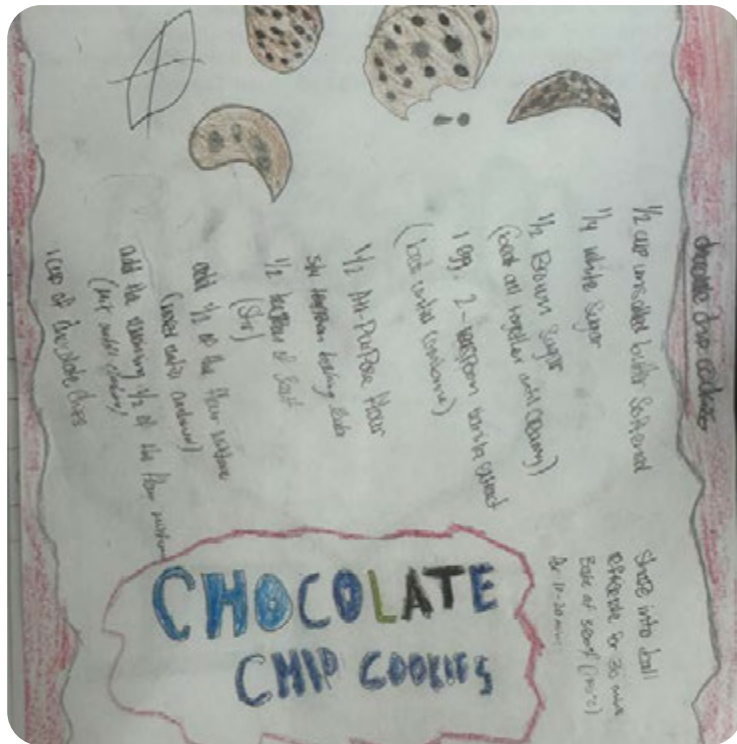 chocolate chip cookies
1/2 cup unsalted butter Softened
1/4 white Sugar
1/2 Brown Sugar
(beat all together until creamy)
1 egg, 2-teaspoon vanilla extract
(beat until combine)
1/2 All-PurPose flour
baking
1/2 teaspoon of Salt
(Stir)
add 1/2 of the flour mixture
add the remaining 1/2 of the flour mixture
1 cup of chocolate chips
Shape into ball
refrigerate for 30 mins
Bake at
for 17-20 mins
CHOCOLATE
CHIP COOKIES